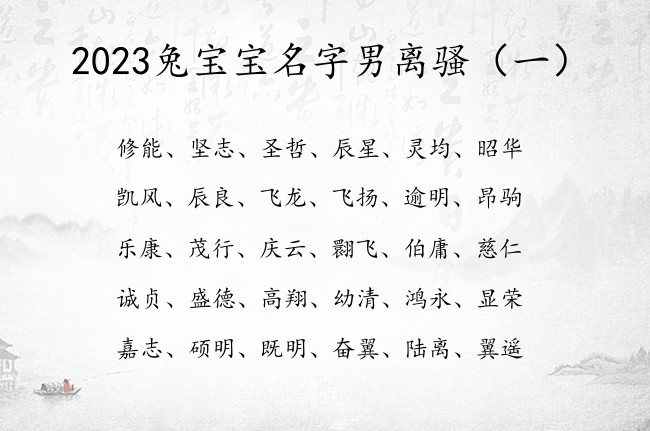 2023兔宝宝名字男离骚（一）
修能、坚志、圣哲、辰星、灵均、昭华
凯风、辰良、飞龙、飞扬、逾明、昂驹
乐康、茂行、庆云、翾飞、伯庸、慈仁
诚贞、盛德、高翔、幼清、鸿永、显荣
嘉志、硕明、既明、奋翼、陆离、翼遥